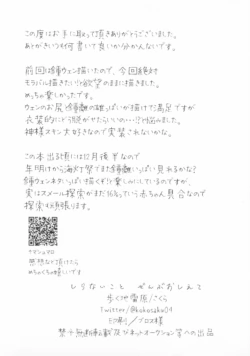 この度はお手に取って頂きありがとうございました。
あとがきいつも何書いて良いか分かんないです。
前回は鍾ウェン描いたので、今回は絶対
モラバル描きたい!と欲望のままに描きました。
めっちゃ楽しかったです。
ウェンのお尻と鍾離の雄っぱいが描けて満足ですが
衣装的にどう脱がせたらいいの…?と悩みました。
神様スキン大好きなので実装されないかな。
この本出る頃には12月後半なので
年明けから海灯祭でまた鍾離いっぱい見れるかな?
鍾ウェンネタいっぱい描くぞ!と楽しみにしているのですが、
実はスメール探索がまだ16%という赤ちゃん具合なので
探索も頑張ります。
感想など頂けたら
めちゃくちゃ嬉しいです
しりないこと ぜんぶおしえて
歩く地雷原/さくら
Twitter/@kokosaka04
印刷/プロス様
禁・無断転載及びネットオークション等への出品